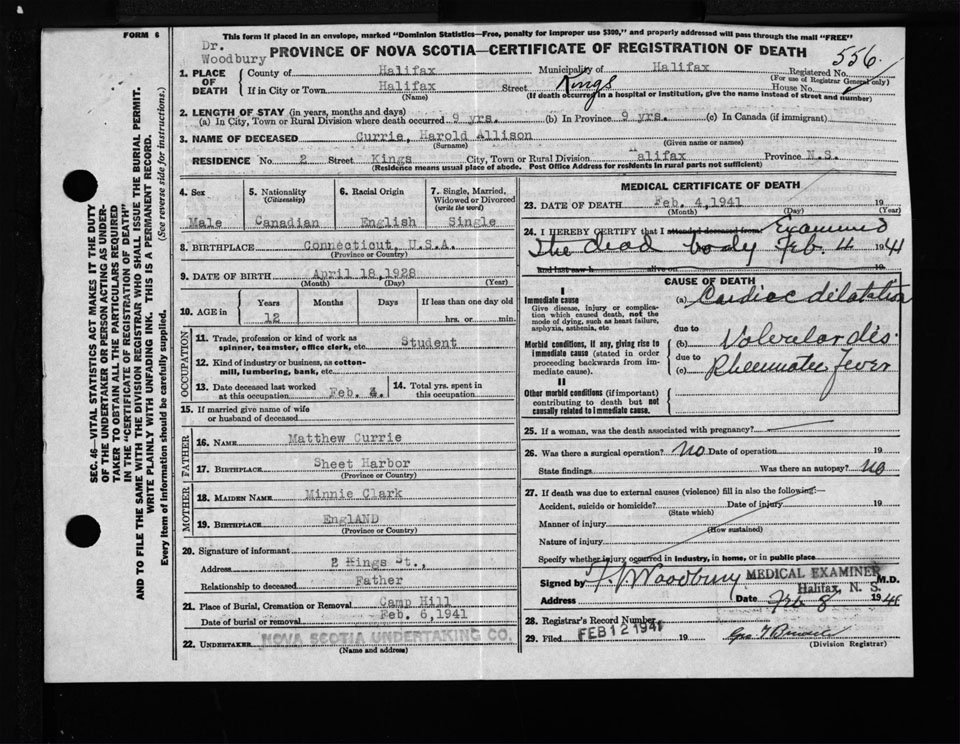 FORM 6
This form if placed in an envelope, marked "Dominion Statistics—Free, penalty for improper use $300," and properly addressed will pass through the mail "FREE"
Dr. Woodbury
PROVINCE OF NOVA SCOTIA—CERTIFICATE OF REGISTRATION OF DEATH
556
1. PLACE OF DEATH County of Halifax Municipality of Halifax Registered No.
(For use of Registrar General only)
If in City or Town Halifax Street Kings House No.
(Name) (If death occurred in a hospital or institution, give the name instead of street and number)
2. LENGTH OF STAY (in years, months and days)
(a) In City, Town or Rural Division where death occurred 9 yrs. (b) In Province 9 yrs. (c) In Canada (if immigrant)
3. NAME OF DECEASED Currie, Harold Allison
(Surname) (Given name or names)
RESIDENCE No. 2 Street Kings City, Town or Rural Division Halifax Province N.S.
(Residence means usual place of abode. Post Office Address for residents in rural parts not sufficient)
4. Sex Male
5. Nationality (Citizenship) Canadian
6. Racial Origin English
7. Single, Married, Widowed or Divorced (write the word) Single
8. BIRTHPLACE Connecticut, U.S.A.
(Province or Country)
9. DATE OF BIRTH April 18,1928
(Month) (Day) (Year)
10. AGE in Years 12 Months Days If less than one day old hrs. or min.
OCCUPATION
11. Trade, profession or kind of work as spinner, teamster, office clerk, etc. Student
12. Kind of industry or business, as cotton-mill, lumbering, bank, etc.
13. Date deceased last worked at this occupation Feb. 4.
14. Total yrs. spent in this occupation
15. If married give name of wife or husband of deceased
FATHER
16. NAME Matthew Currie
17. BIRTHPLACE Sheet Harbor
(Province or Country)
MOTHER
18. MAIDEN NAME Minnie Clark
19. BIRTHPLACE EnglAND
(Province or Country)
20. Signature of informant
Address 2 Kings St.,
Relationship to deceased Father
21. Place of Burial, Cremation or Removal Camp Hill
Date of burial or removal Feb. 6,1941
22. UNDERTAKER NOVA SCOTIA UNDERTAKING CO.
(Name and address)
MEDICAL CERTIFICATE OF DEATH
23. DATE OF DEATH Feb. 4,1941 19
(Month) (Day) (Year)
24. I HEREBY CERTIFY that I attended deceased from Examined
The dead body Feb 4 1941
and last saw h alive on 19
CAUSE OF DEATH
I
Immediate cause
Give disease, injury or complication which caused death, not the mode of dying, such as heart failure, asphyxia, asthenia, etc
(a) Cardiac dilatation
due to
Morbid conditions, if any, giving rise to immediate cause (stated in order proceeding backwards from immediate cause).
(b) Valvular dis.
due to
(c) Rheumatic Fever
II
Other morbid conditions (if important) contributing to death but not causally related to immediate cause.
25. If a woman, was the death associated with pregnancy?
26. Was there a surgical operation? No Date of operation 19
State findings Was there an autopsy? No
27. If death was due to external causes (violence) fill in also the following:—
Accident, suicide or homicide? Date of injury 19
(State which)
Manner of injury
(How sustained)
Nature of injury
Specify whether injury occurred in industry, in home, or in public place
Signed by Woodbury MEDICAL EXAMINER M.D.
Halifax, N. S.
Address Date Feb 8 1941
28. Registrar's Record Number
29. Filed FEB 12 1941 19
(Division Registrar)
SEC. 46—VITAL STATISTICS ACT MAKES IT THE DUTY
OF THE UNDERTAKER OR PERSON ACTING AS UNDER-
TAKER TO OBTAIN ALL THE PARTICULARS REQUIRED
IN THE "CERTIFICATE OF REGISTRATION OF DEATH"
AND TO FILE THE SAME WITH THE DIVISION REGISTRAR WHO SHALL ISSUE THE BURIAL PERMIT.
WRITE PLAINLY WITH UNFADING INK. THIS IS A PERMANENT RECORD.
Every item of information should be carefully supplied. (See reverse side for instructions.)